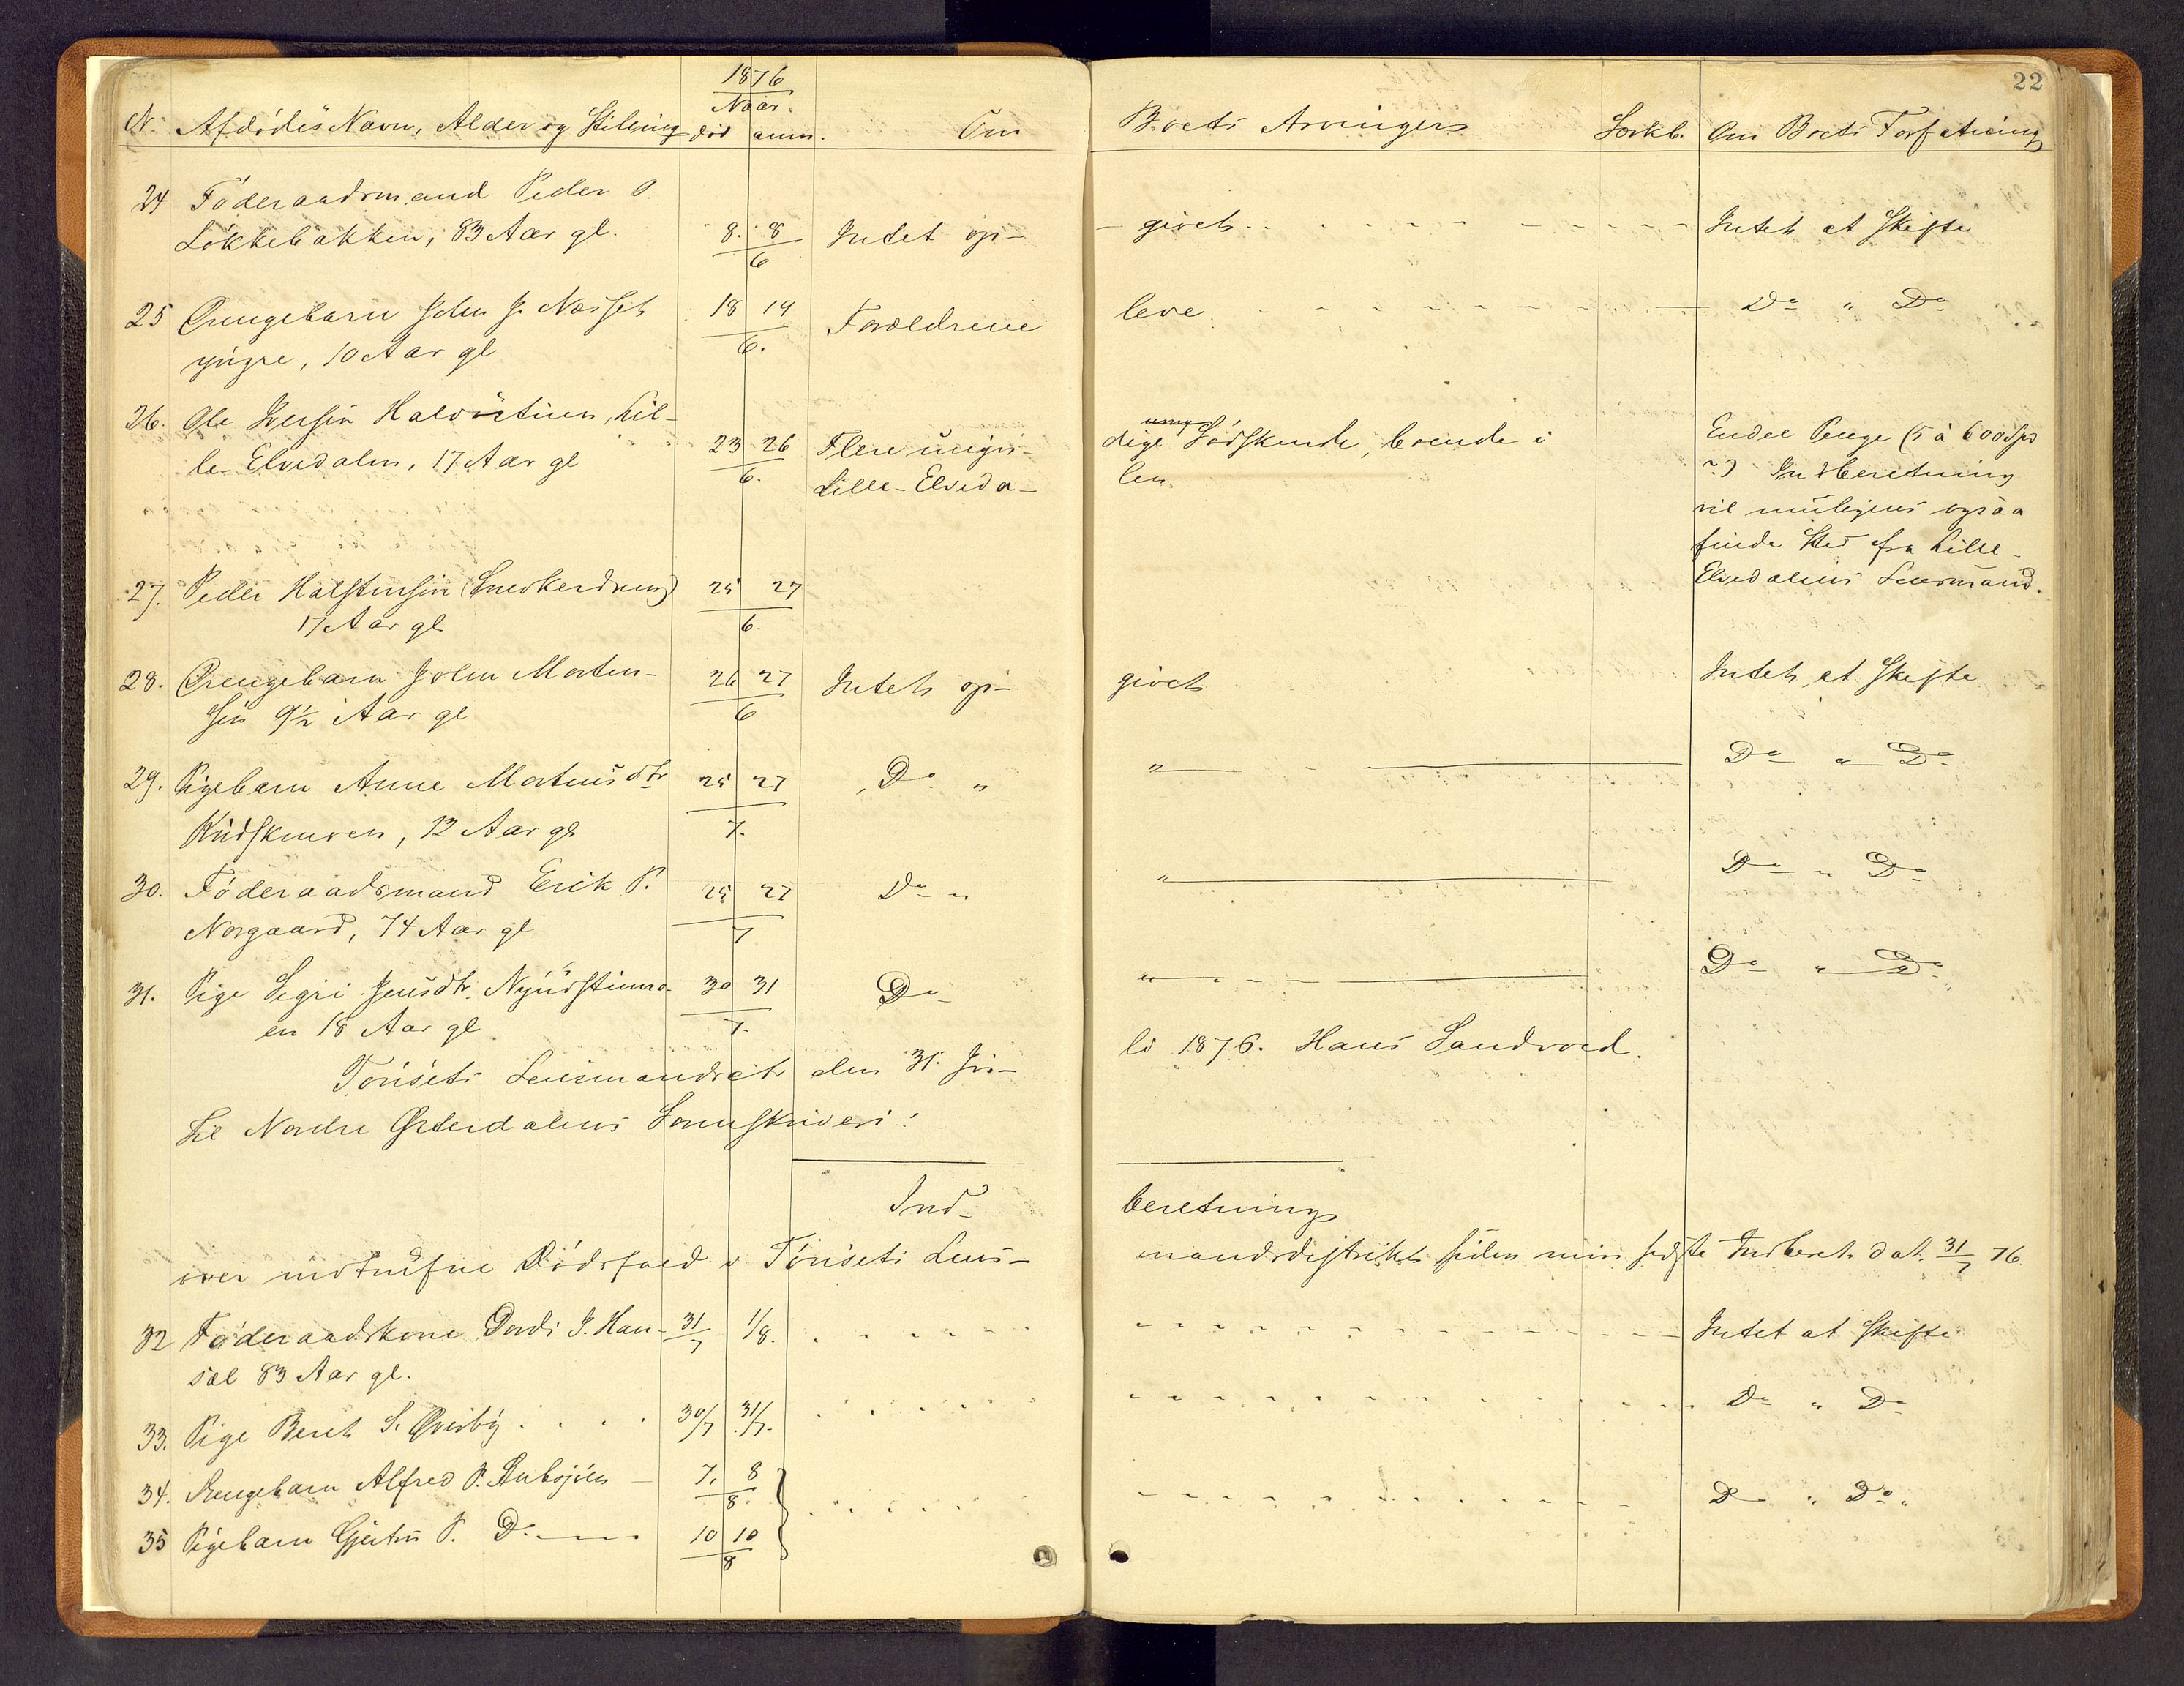 22
1876
Naar
N. Afdødes Navn, Alder og Stilling død anm. Om Boets Arvinger Om Boets Forfatning
24 Föderaadsmand Peder P.
Løkkebakken, 83 Aar gl. 8. 8 Intet op- givet Intet at Skifte
6
25 Drengebarn John J. Næsset 18 19 Forældrene leve Do " Do
yngre, 10 Aar gl 6.
26. Ole Iversen Lil-
le-Elvedalen, 17 Aar gl 23 26 Flere umyn- dige Sødskende, boende i Endel Penge (5 à 600 Spd
6. Lille-Elveda- len ?) Indberetning
vil muligens ogsaa
finde Sted fra Lille-
Elvedalens Lensmand.
27. Peder Halstensen (Snedkerdreng) 25 27
17 Aar gl 6.
28. Drengebarn John Morten- 26 27 Intet op- givet Intet at Skifte
sen 9½ Aar gl 6
29. Pigebarn Anne Mortensdtr 25 27 Do " " Do " Do
12 Aar gl 7.
30. Föderaadsmand Erik P. 25 27 Do " " Do " Do
Norgaard, 74 Aar gl 7
31. Pige Sigri Jensdtr. 30 31 Do " Do " Do
en 18 Aar gl 7.
Tönsets Lensmandsct. den 31. Ju- li 1876. Hans Sandvoed.
Til Nordre Østerdalens Sorenskriveri.
Ind- beretning
over indtrufne Dödsfald i Tönsets Lens- mandsdistrikt siden min sidste Indberet. dat. 31/7 76
32 Föderaadskone Dordi J. Han- 31/7 1/8. Intet at Skifte
sæl 83 Aar gl.
33. Pige Beret S. Øverby 30/7 31/7. Do " Do
34. Drengebarn Alfred P. 7. 8 Do " Do "
8.
35 Pigebarn Gjertru P. Do 10 10
8